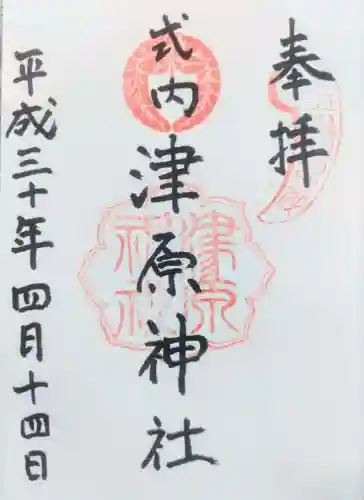 奉拝
式内 津原神社
平成三十年四月十四日
津原
神社